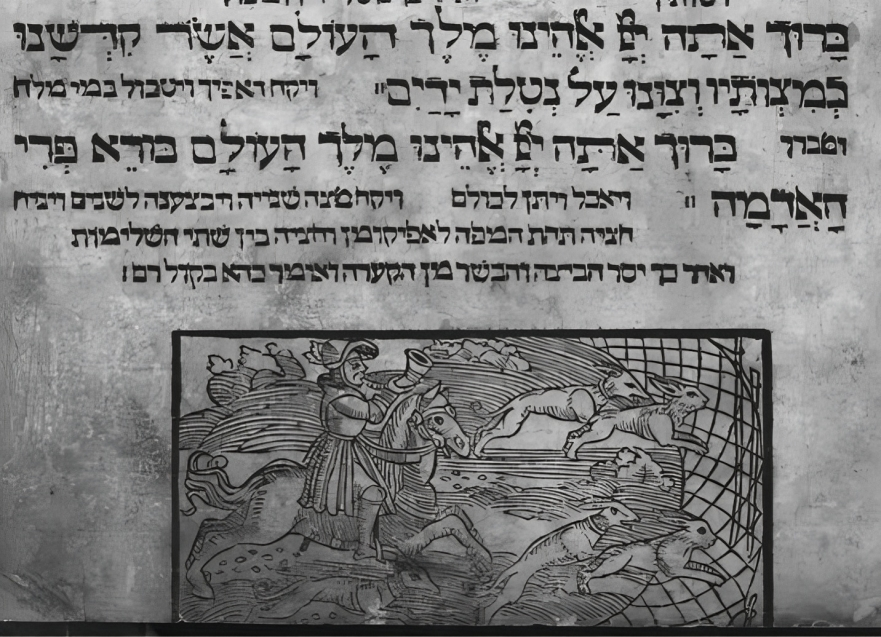 בָּרוּךְ אַתָּה יְיָ אֱלֹהֵינוּ מֶלֶךְ הָעוֹלָם אֲשֶׁר קִדְּשָׁנוּ
בְּמִצְוֹתָיו וְצִוָּנוּ עַל נְטִלַת יָדַיִם׃ ויקח האפיך ויטבול במי מלח
ויברך בָּרוּךְ אַתָּה יְיָ אֱלֹהֵינוּ מֶלֶךְ הָעוֹלָם בּוֹרֵא פְּרִי
הָאֲדָמָה׃ ויאכל ויתן לכולם ויקח מצה שנייה ויבצענה לשנים ויניח
חציה תחת המפה לאפיקומן וחציה בין שתי השלימות
ואחר כך יסר הביצה והבשר מן הקערה ואומר כהא בקול רם׃